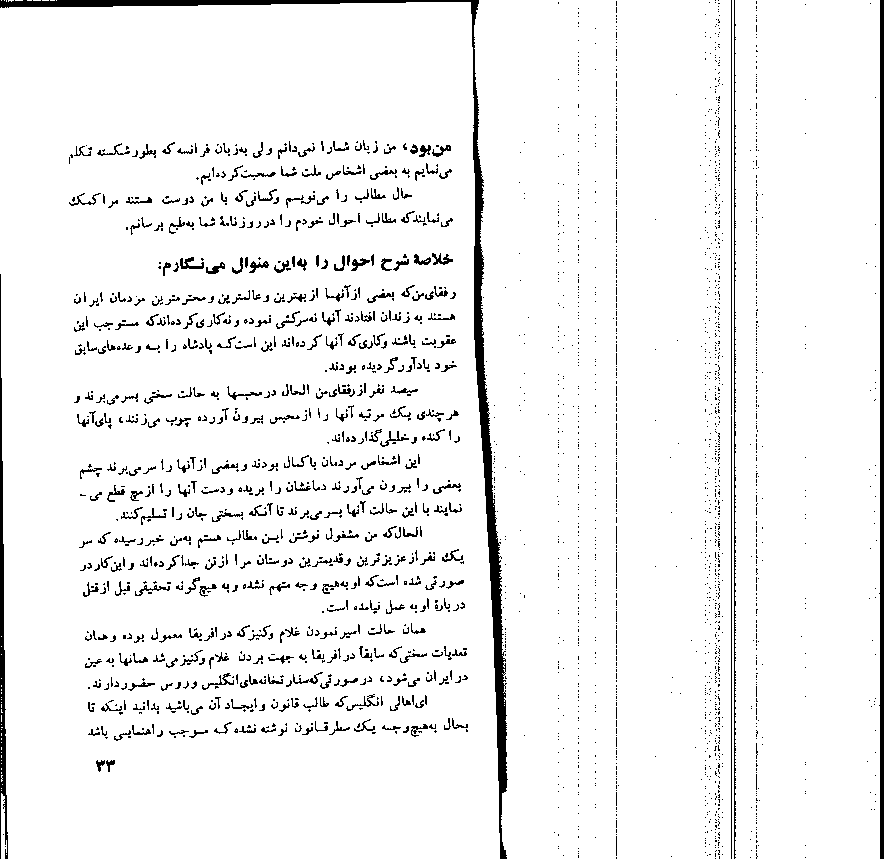 من‌بود، من زبان شمارا نمی‌دانم ولی به‌زبان فرانسه که بطور شکسته تکلم
می‌نمایم به بعضی اشخاص ملت شما صحبت‌کرده‌ایم.
حال مطالب را می‌نویسم وکسانی‌که با من دوست هستند مراکمک
می‌نمایندکه مطالب احوال خودم را درروزنامهٔ شما به‌طبع برسانم.
خلاصهٔ شرح احوال را به‌این منوال می‌نگارم:
رفقای‌من‌که بعضی ازآنهـا ازبهترین وعالمترین ومحترمترین مردمان ایران
هستند به زندان افتادند آنها نه‌سرکشی نموده ونه‌کاری‌کرده‌اندکه مستوجب این
عقوبت باشند وکاری‌که آنها کرده‌اند این است‌کـه پادشاه را بـه وعده‌های‌سابق
خود یادآورگردیده بودند.
سیصد نفر ازرفقای‌من الحال درمحبسها به حالت سختی بسرمی‌برند و
هرچندی یک مرتبه آنها را ازمحبس بیرون آورده چوب می‌زنند، پای‌آنها
را کنده وخلیلی‌گذارده‌اند.
این اشخاص مردمان باکمال بودند وبعضی ازآنها را سرمی‌برند چشم
بعضی را بیرون می‌آورند دماغشان را بریده ودست آنها را ازمچ قطع می-
نمایند با این حالت آنها بسرمی‌برند تا آنکه بسختی جان را تسلیم‌کنند.
الحال‌که من مشغول نوشتن ایـن مطالب هستم به‌من خبررسیده که سر
یک نفر ازعزیزترین وقدیمترین دوستان مرا ازتن جداکرده‌اند واین‌کاردر
صورتی شده است‌که اوبه‌هیچ وجه متهم نشده وبه هیچ‌گونه تحقیقی قبل ازقتل
دربارهٔ اوبه عمل نیامده است.
همان حالت اسیرنمودن غلام وکنیزکه درافریقا معمول بوده وهمان
تعدیات سختی‌که سابقاً درافریقا به جهت بردن غلام وکنیزمی‌شد همانها به عین
درایران می‌شود، درصورتی‌که‌سفارتخانه‌های‌انگلیس وروس حضوردارند.
ای‌اهالی انگلیس‌که طالب قانون وایجـاد آن می‌باشید بدانید اینکه تا
بحال به‌هیچ‌وجـه یک سطرقـانون نوشته نشده‌کـه مـوجب راهنمایـی باشد
۳۳